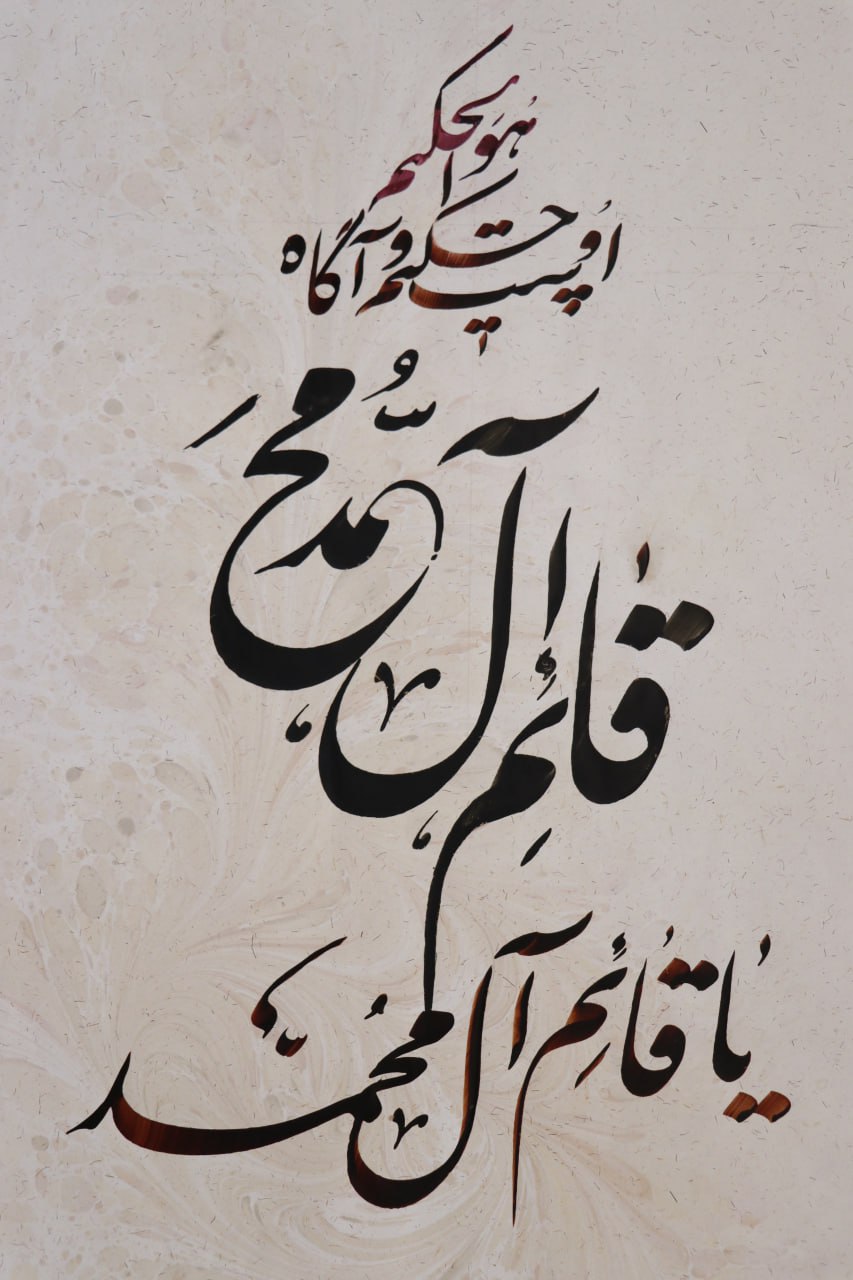 هُوَ الحکیم
اوُست حکیم و آگاه
قائِم آل مُحَمَّد
یا قائِم آل مُحَمَّد